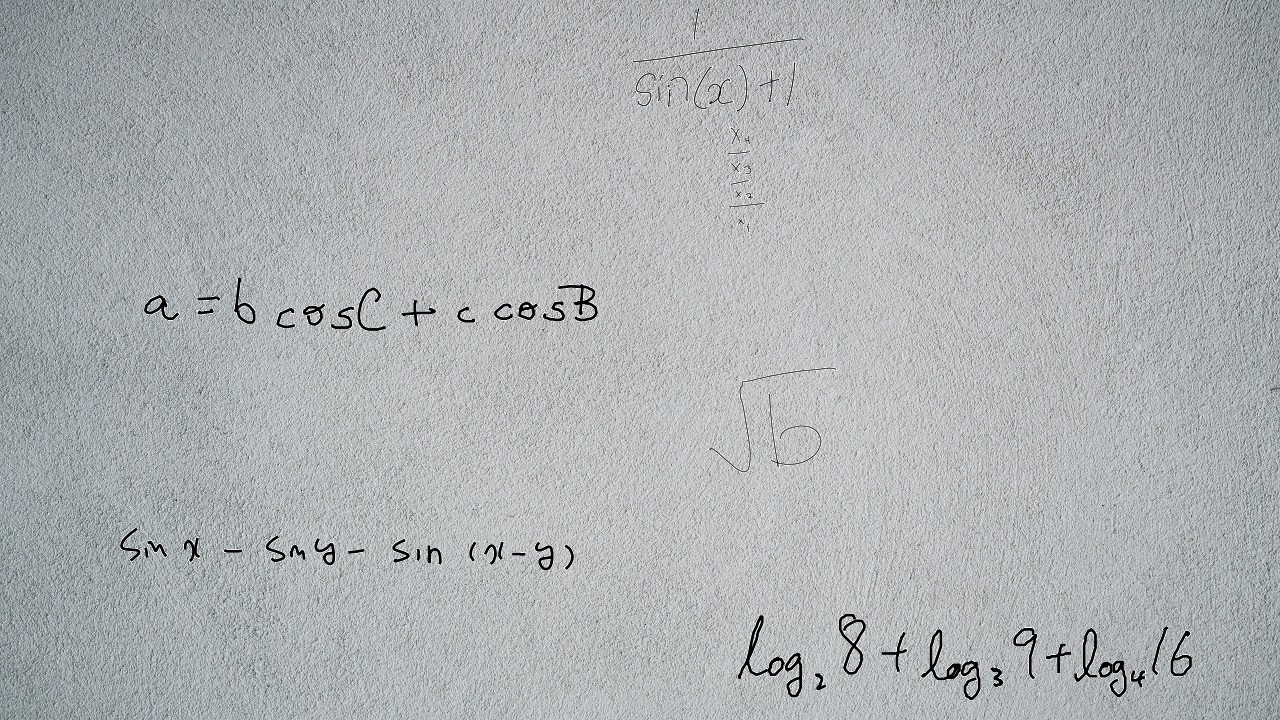 \frac{1}{\sin(x)+1}
\frac{\frac{x_4}{x_3}}{\frac{x_2}{x_1}}
a = b cos C + c cos B
\sqrt{b}
sin x - sin y - sin (x-y)
log_2 8 + log_3 9 + log_4 16